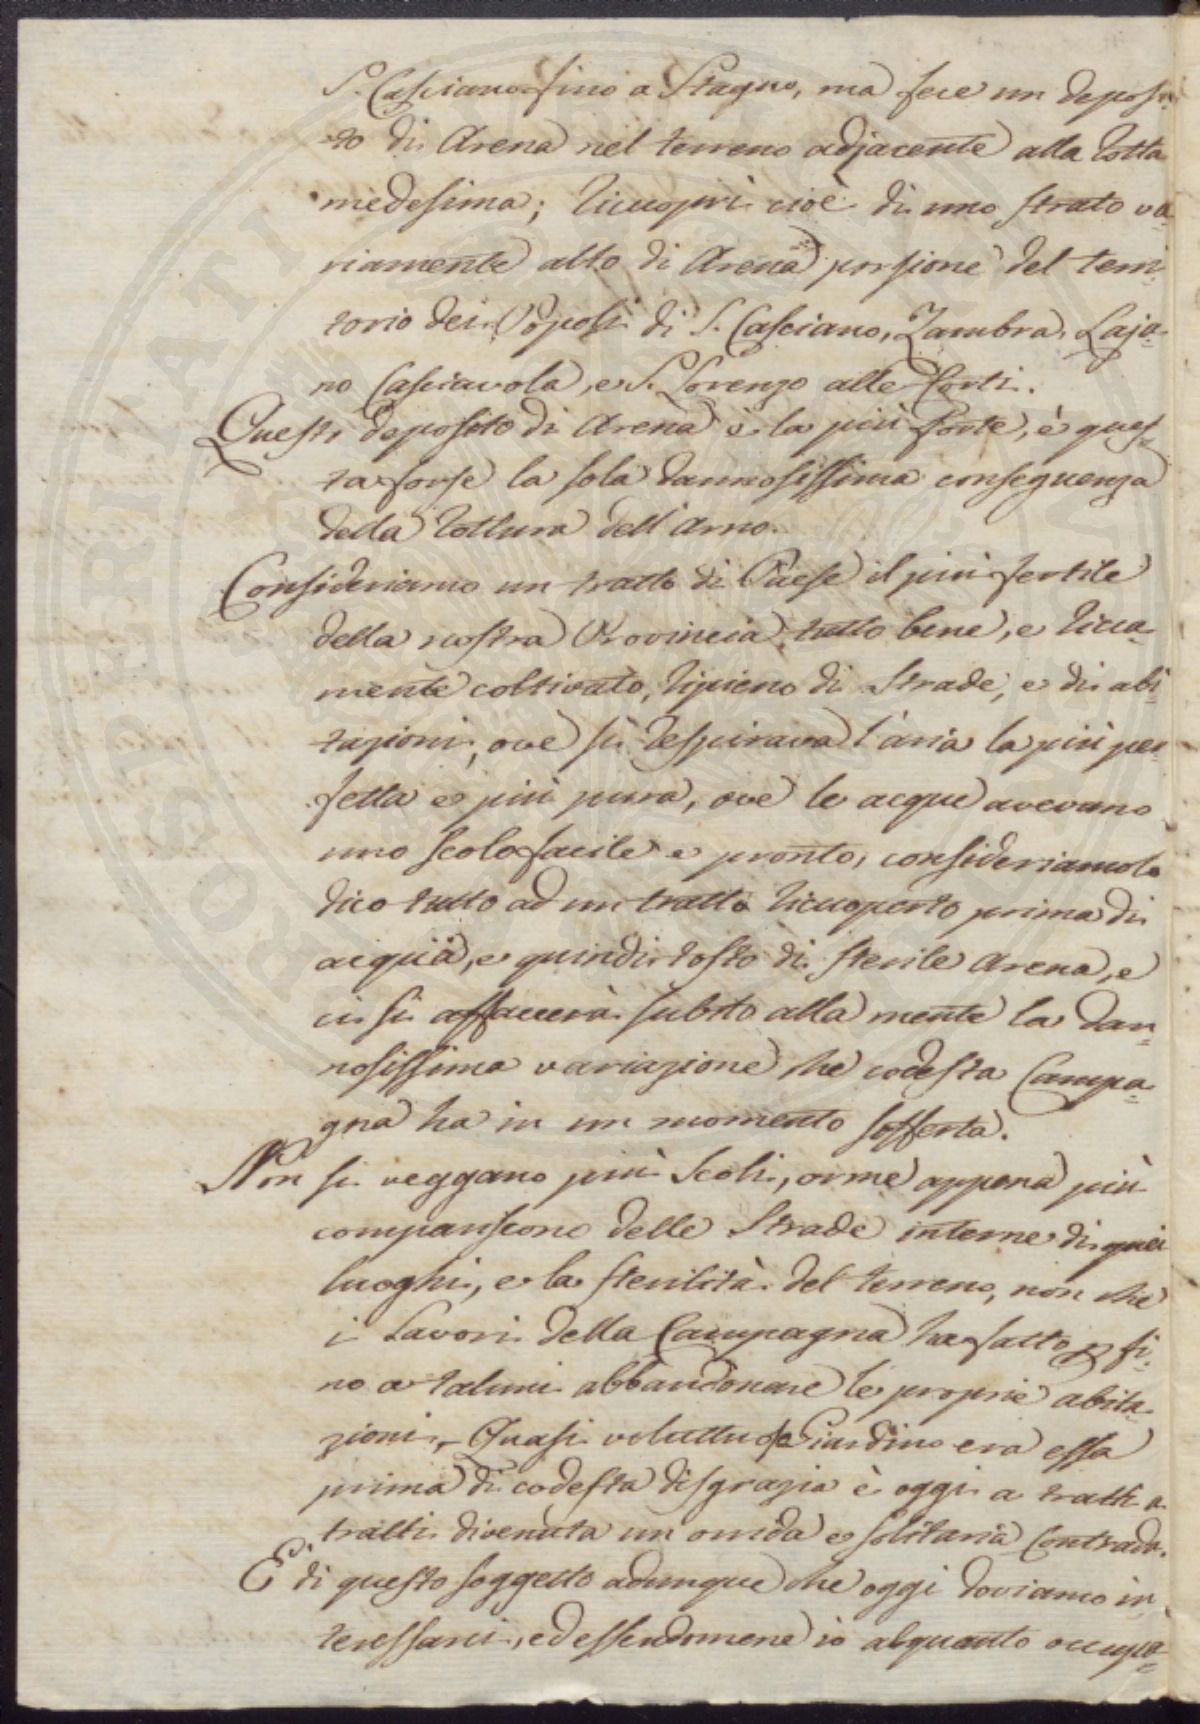 S. Casciano fino a Stagno, ma fece un deposi-
-to di Arena nel terreno adjacente alla Rotta
medesima; Ricuoprì cioè di uno strato va-
riamente alto di Arena porzione del terri-
torio dei Popoli di S. Casciano, Zambra, Laja-
no Casciavola, e S. Lorenzo alle Corti.
Questo deposito di Arena è la più forte, è ques-
ta forse la sola dannosissima conseguenza
della Rottura dell'Arno.
Consideriamo un tratto di Paese il più fertile
della nostra Provincia, tutto bene, e Ricca-
mente coltivato, Ripieno di Strade, e di abi-
tazioni, ove si Respirava l'aria la più per-
fetta e più pura, ove le acque avevano
uno scolo facile e pronto, consideriamolo
dico tutto ad un tratto Ricuoperto prima di
acqua, e quindi tosto di sterile Arena, e
ci si affaccerà subito alla mente la dan-
nosissima variazione che codesta Campa-
gna ha in un momento sofferta.
Non si veggano più Scoli, orme appena più
compariscono delle Strade interne di quei
luoghi, e la sterilità del terreno, non che
i Lavori della Campagna ha fatto fi-
no a taluni abbandonare le proprie abita-
zioni, Quasi Giardino era essa
prima di codesta disgrazia è oggi a tratti a
tratti divenuta un orrida e solitaria Contrada.
E' di questo soggetto adunque che oggi doviamo in-
teressarci, ed essendomene io alquanto occupa-